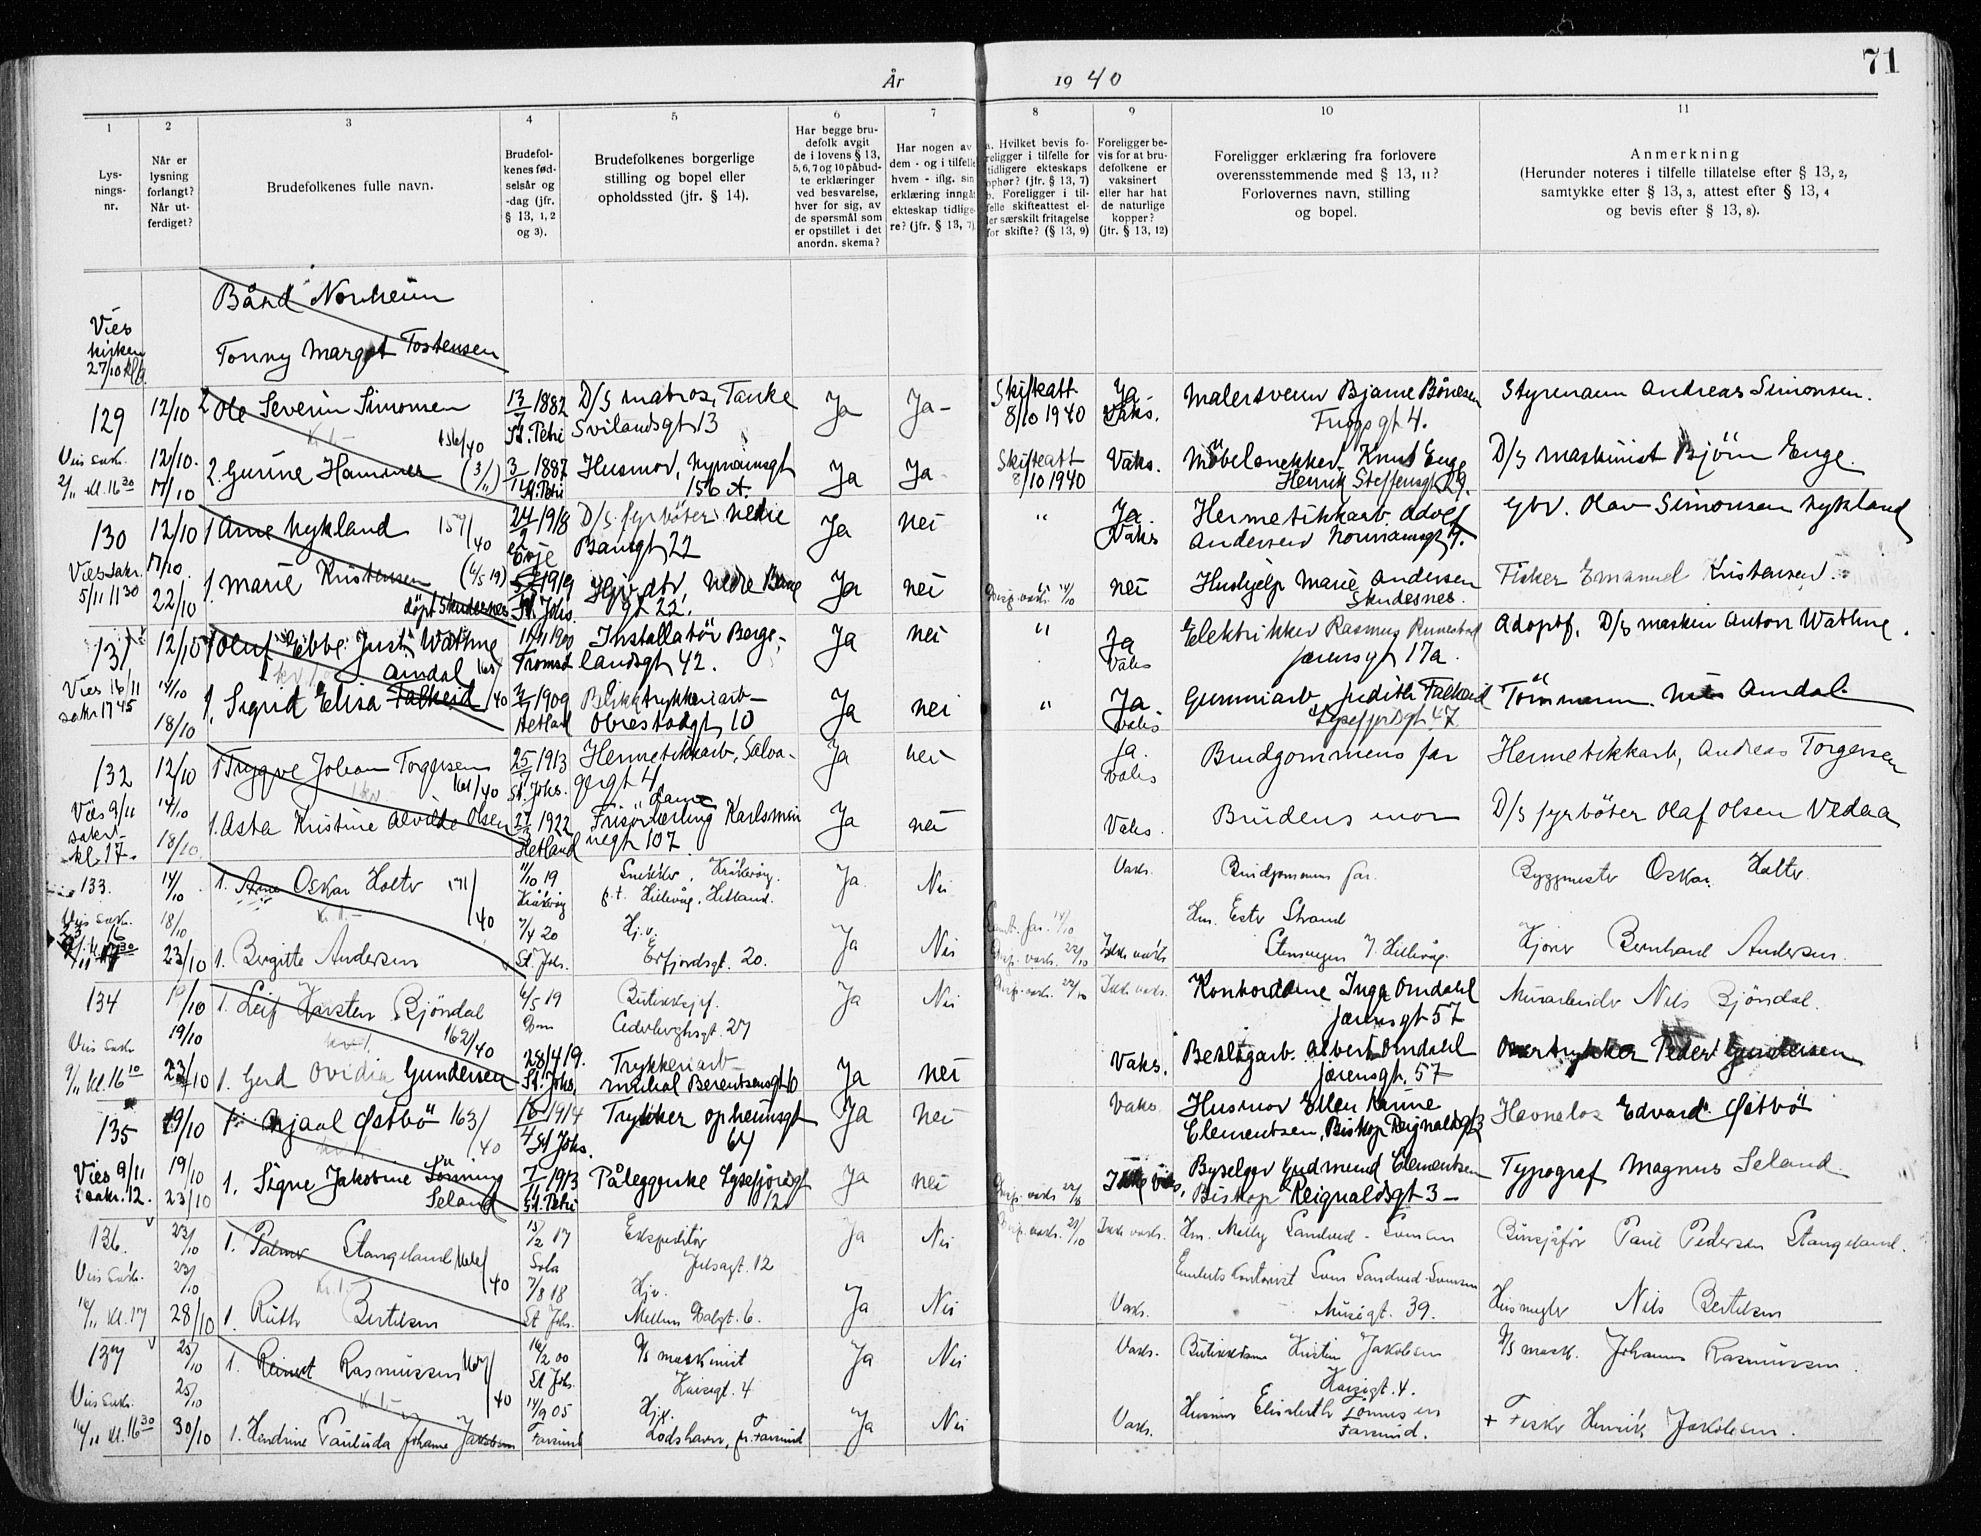 71
År 1940
1 2 3 4 5 6 7 8 9 10 11
Lys-
nings-
nr.
Når er
lysning
forlangt?
Når ut-
ferdiget?
Brudefolkenes fulle navn.
Brudefol-
kenes fød-
selsår og
-dag (jfr.
§ 13, 1, 2
og 3).
Brudefolkenes borgerlige
stilling og bopel eller
opholdssted (jfr. § 14).
Har begge bru-
defolk avgit
de i lovens § 13,
5, 6, 7 og 10 påbud-
te erklæringer
ved besvarelse,
hver for sig, av
de spørsmål som
er opstillet i det
anordn. skema?
Har nogen av
dem - og i tilfelle
hvem - iflg. sin
erklæring inngåt
ekteskap tidlige-
re? (jfr. § 13, 7)
a. Hvilket bevis fo-
religger i tilfelle for
tidligere ekteskaps
ophør? (jfr. § 13, 7)
b. Foreligger i til-
felle skifteattest el-
ler særskilt fritagelse
for skifte? (§ 13, 9)
Foreligger be-
vis for at bru-
defolkene er
vaksinert
eller har hat
de naturlige
kopper?
(jfr. § 13, 12)
Foreligger erklæring fra forlovere
overensstemmende med § 13, 11?
Forlovernes navn, stilling
og bopel.
Anmerkning
(Herunder noteres i tilfelle tillatelse efter § 13, 2,
samtykke efter § 13, 3, attest efter § 13, 4
og bevis efter § 13, 8).
Bård Norheim
Tonny Margot Tostensen
Vies
kirken
27/10 kl.
129 12/10 2 Ole Severin Simonsen 13/7 1882 D/s matros, Tanke Ja Ja- Skifteatt Ja- Malersvenn Bjarne Bönesen Styrmann Andreas Simonsen.
156/40 St. Petri Svilandsgt 13 8/10 1940 Vaks. Frogsgt 4.
Vies sakr. 12/10. 2. Gurine Hammer (3/11) 3/11 1887 Husmor, Nymannsgt Ja Ja- Skifteatt Vaks. Möbelsnekker Knut Enge D/s maskinist Bjørn Enge.
2/11 kl. 16 30 17/10 St. Petri 15b A. 8/10 1940 Henrik Steffensgt 29.
130 12/10 1 Arne Nykland 159/40 24/2 1918 D/s fyrböter Nedre Ja Nei " Ja. Hermetikkarb. Adolf Gbr. Olav Simonsen Nykland
Evje Banegt 22 Vaks Andersen Normannsgt 7.
Vies sakr. 17/10. 1. Marie Kristensen (6/5 19) 1919 Hjv. dtr, Nedre Bane Ja nei " nei Hushjelp Marie Andersen Fisker Emanuel Kristensen.
5/11 11 30 22/10 döpt Skudesnes St. Johs. gt 22. Skudesnes.
131 12/10 1 Oluf Ebbe Just Wathne 1900 Installatör Berge- Ja nei " Ja Elektrikker Rasmus Adoptf. D/s maskin Anton Wathne.
Tromsö landsgt 42. Vaks Jærensgt 17a.
Vies 16/11 14/10 1. Sigrid Elisa Falkeid Omdal /40 1909 Blikktrykkeriarb- Ja nei " Ja Gummiarb. Judith Falkeid Tömmerm. Nils Omdal
sakr 17 45 18/10 Hetland Obrestadgt 10 Vaks Lysefjordgt 47
132 12/10 1 Trygve Johan Torgersen 25/ 1913 Hermetikkarb, Salva- Ja nei Ja. Brudgommens far Hermetikkarb, Andreas Torgersen
161/40 St. Johs. gergt 4 Vaks
Vies 9/11 14/10 1. Asta Kristine Alvilde Olsen 1922 Dame Frisørlærling Karlsmin Ja nei Vaks. Brudens mor D/s fyrböter Olaf Olsen Vedaa
sakr. kl. 17. 18/10 Hetland negt 107
133. 14/10 1. Arne Oskar Holter 171/40 11/10 19 Snekker, Kråkeröy. Ja Nei Vaks. Brudgommens far. Byggmester Oskar Holter
Kråkeröy p.t. Hillevåg, Hetland.
Vies sakr. 18/10 7/4 20 Hjv. Hm. Ester Strand
23/10 1. Bergitte Andersen St. Johs. Erfjordsgt. 20. Ja Nei Ikke vaks Hillevåg. Kjører Bernhard Andersen.
134 19/10 1. Leif Karsten Bjöndal 6/5 19 Butikkspf. Ja Nei Disp. vaks. 22/10 Ikke vaks. Kontordame Inga Omdahl Murarbeider Nils Bjöndal.
162/40 Dom Cederberghsgt. 27 Jærensgt 57
Vies sakr 19/10
9/11 kl. 16 10 23/10 1. Gerd Ovidia Gundersen 28/4 19. Trykkeriarb- Ja nei Vaks. Beslagarb. Albert Omdahl Overtrykker Peder Gundersen
St. Johs. Michal Berentsensgt 10 Jærensgt. 57
135 19/10 1. Östbö 163/40 1914 Trykker Opheimsgt Ja nei Vaks Husmor Ellen Clementsen, Bispkop Reignaldsgt 3 Havnelos Edvard Östbö
St Johs. 64
Vies 9/11 19/10 1. Signe Jakobine Seland 1913 Påleggerske Lysefjordgt Ja nei Disp. vaks Ikke vaks. Byselger Gudmund Clementsen Typograf Magnus Seland
sakr. 12. 23/10 St. Petri 12 Biskop Reignaldsgt 3-
136. 23/10 1. Palmer Stangeland /40 13/2 17 Ekspeditör Ja Nei Disp. vaks. 23/10 Ikke vaks. Hm. Melby Sandved-Svensen Paul Pedersen Stangeland.
Sola Julsagt. 12
Vies sakr. 23/10 7/8 18 Hjv. Kontorist Sven Sandved-Svensen
16/11 kl. 17 28/10 1. Ruth Bertelsen St Johs. Mellem Dalgt. 6. Ja Nei Vaks. Musegt. 39. Husmegler Nils Bertelsen
137 25/10 1. Reinert Rasmussen /40 16/2 00 D/s maskinist Ja Nei Vaks. Butikkdame Kirsten Jakobsen D/s mask. Johannes Rasmussen.
St Johs. Kaisegt. 4 Kaisegt. 4.
Vies sakr. 25/10 14/9 05 Hjv.
16/11 kl. 16 30 30/10 1. Hendrine Paulida Johanne Jakobsen Farsund Lodshavn, pr. Farsund Ja Nei Vaks. Husmor Elisabeth Farsund. + Fisker Henrik Jakobsen.